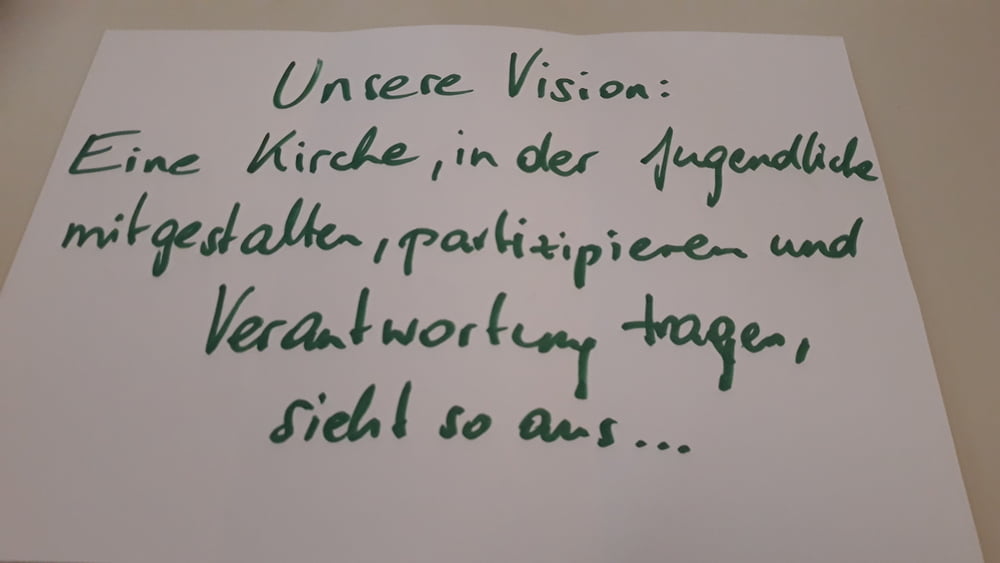 Unsere Vision:
Eine Kirche, in der Jugendliche
mitgestalten, partizipieren und
Verantwortung tragen,
sieht so aus...